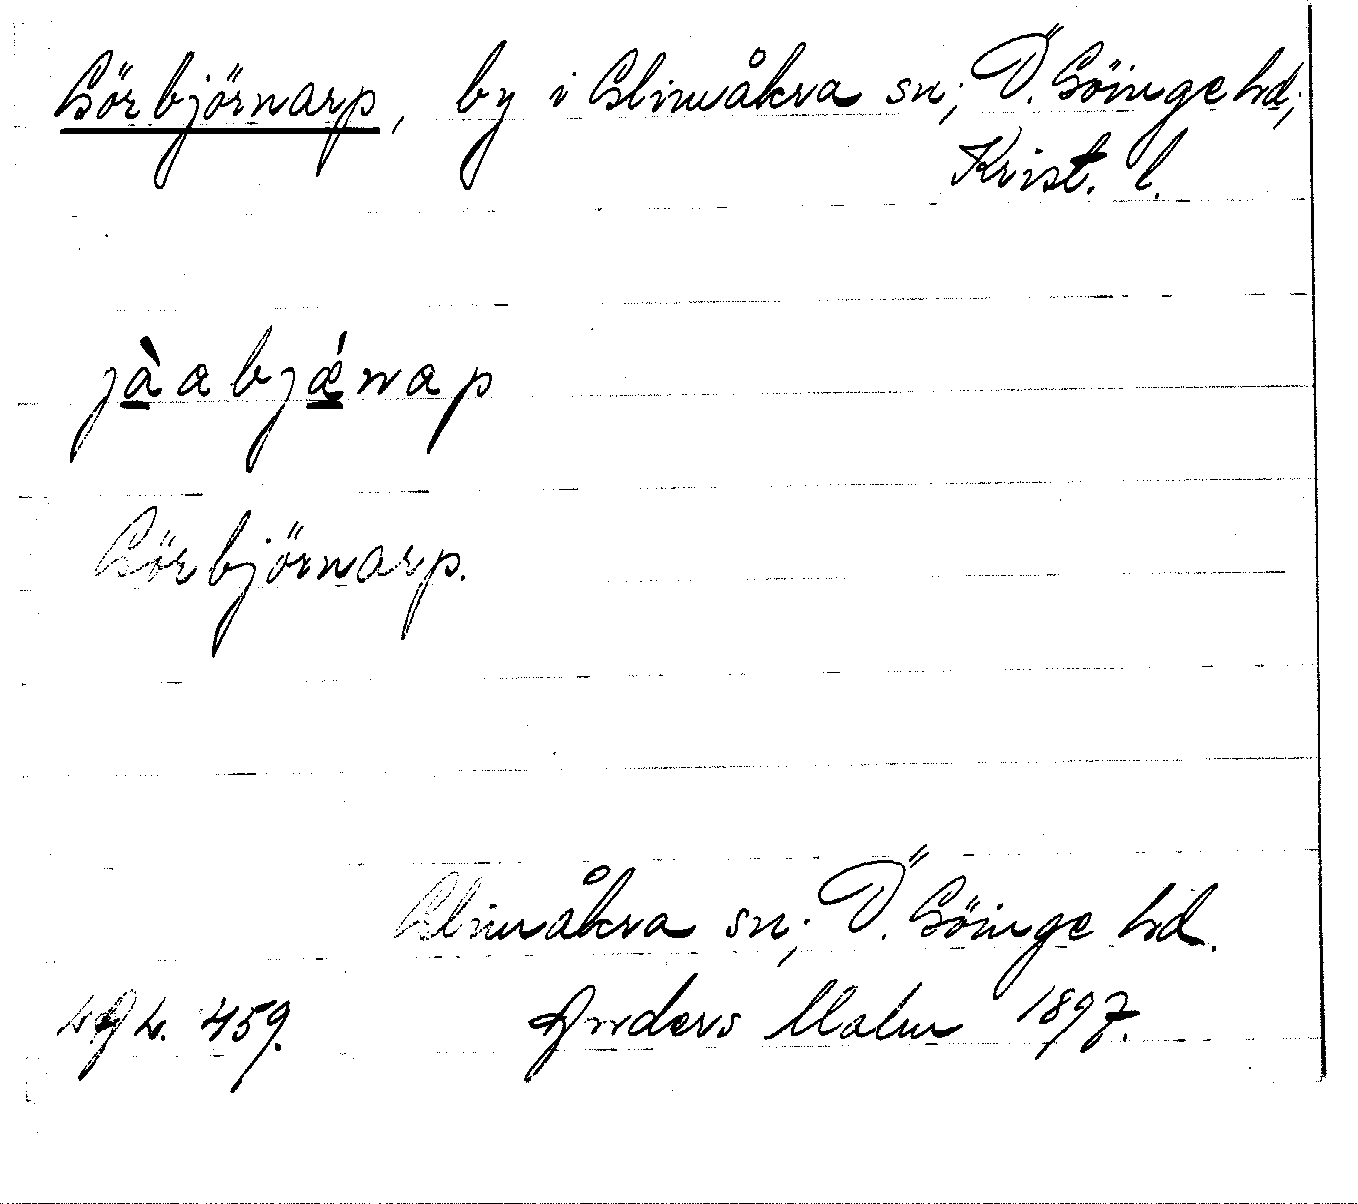 Görbjörnarp, by i Glimåkra sn; Ö. Göinge hd;
Krist. l.
jàabjǽnap
Görbjörnarp.
Glimåkra sn; Ö. Göinge hd.
459. Anders Malm 1897.